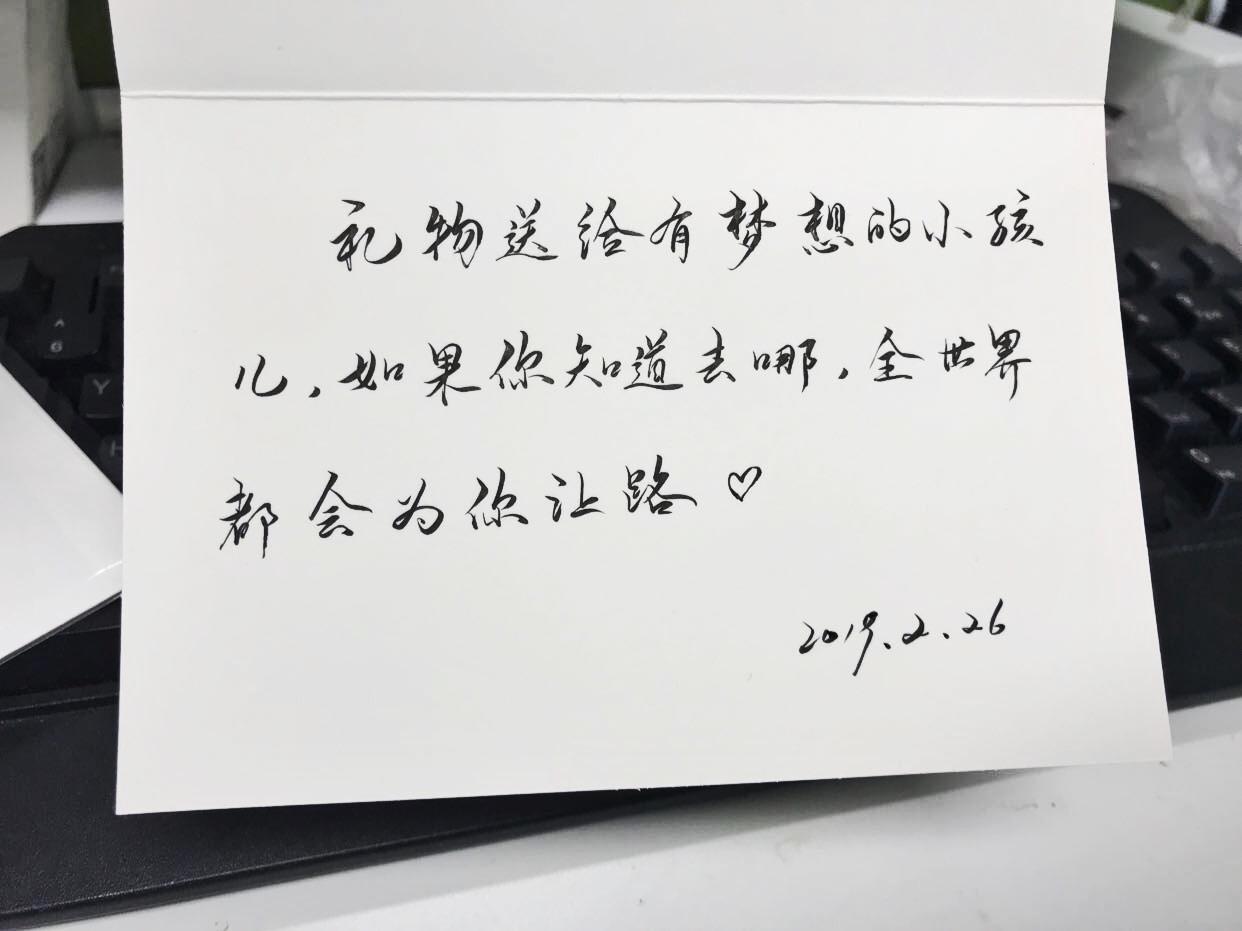 礼物送给有梦想的小孩
儿，如果你知道去哪，全世界
都会为你让路♡
2019.2.26
A
G
Y
H